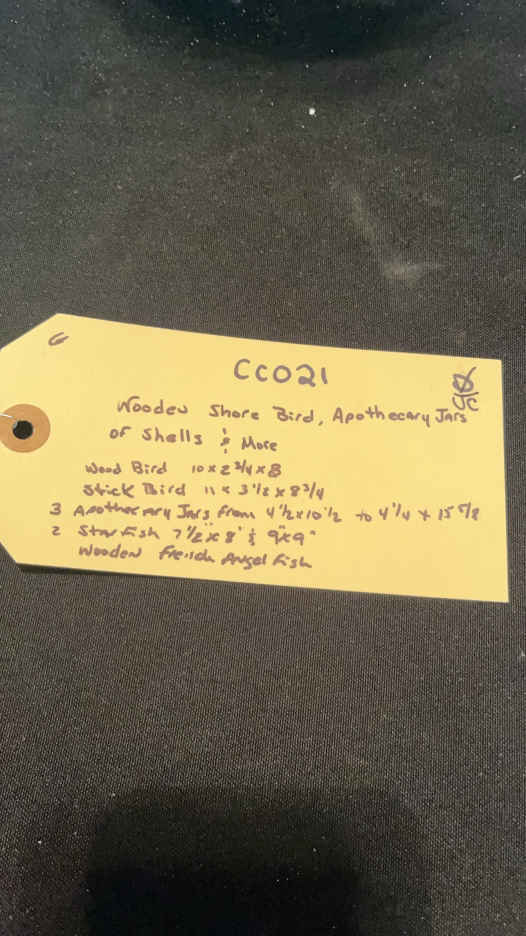 CC021
Wooden Shore Bird, Apothecary Jars
of Shells & More
Wood Bird 10 x 2 3/4 x 8
Stick Bird 11 x 3 1/2 x 8 3/4
3 Apothecary Jars From 4 1/2 x 10 1/2 to 4 1/4 x 15 5/8
2 Star Fish 7 1/2" x 8" & 9" x 9"
Wooden French Angel Fish